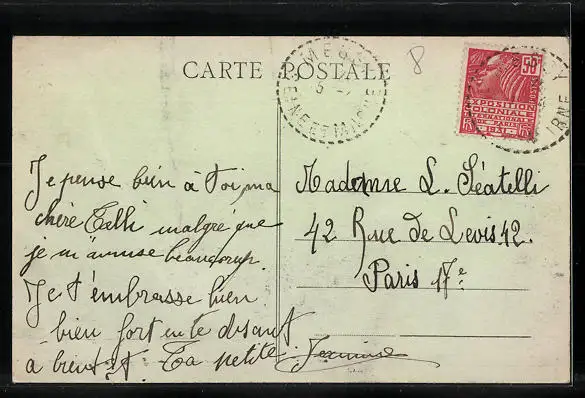 CARTE POSTALE
8
50
EXPOSITION
COLONIALE
INTERNATIONALE
DE PARIS
1931
SEINE ET MARNE
Je pense bien à toi, ma
chère Telli malgré que
je m'amuse beaucoup.
Je t'embrasse bien
bien fort en te disant
à bientôt. Ta petite Jeannine
Madame L. Séatelli
42 Rue de Levis. 42.
Paris 17e